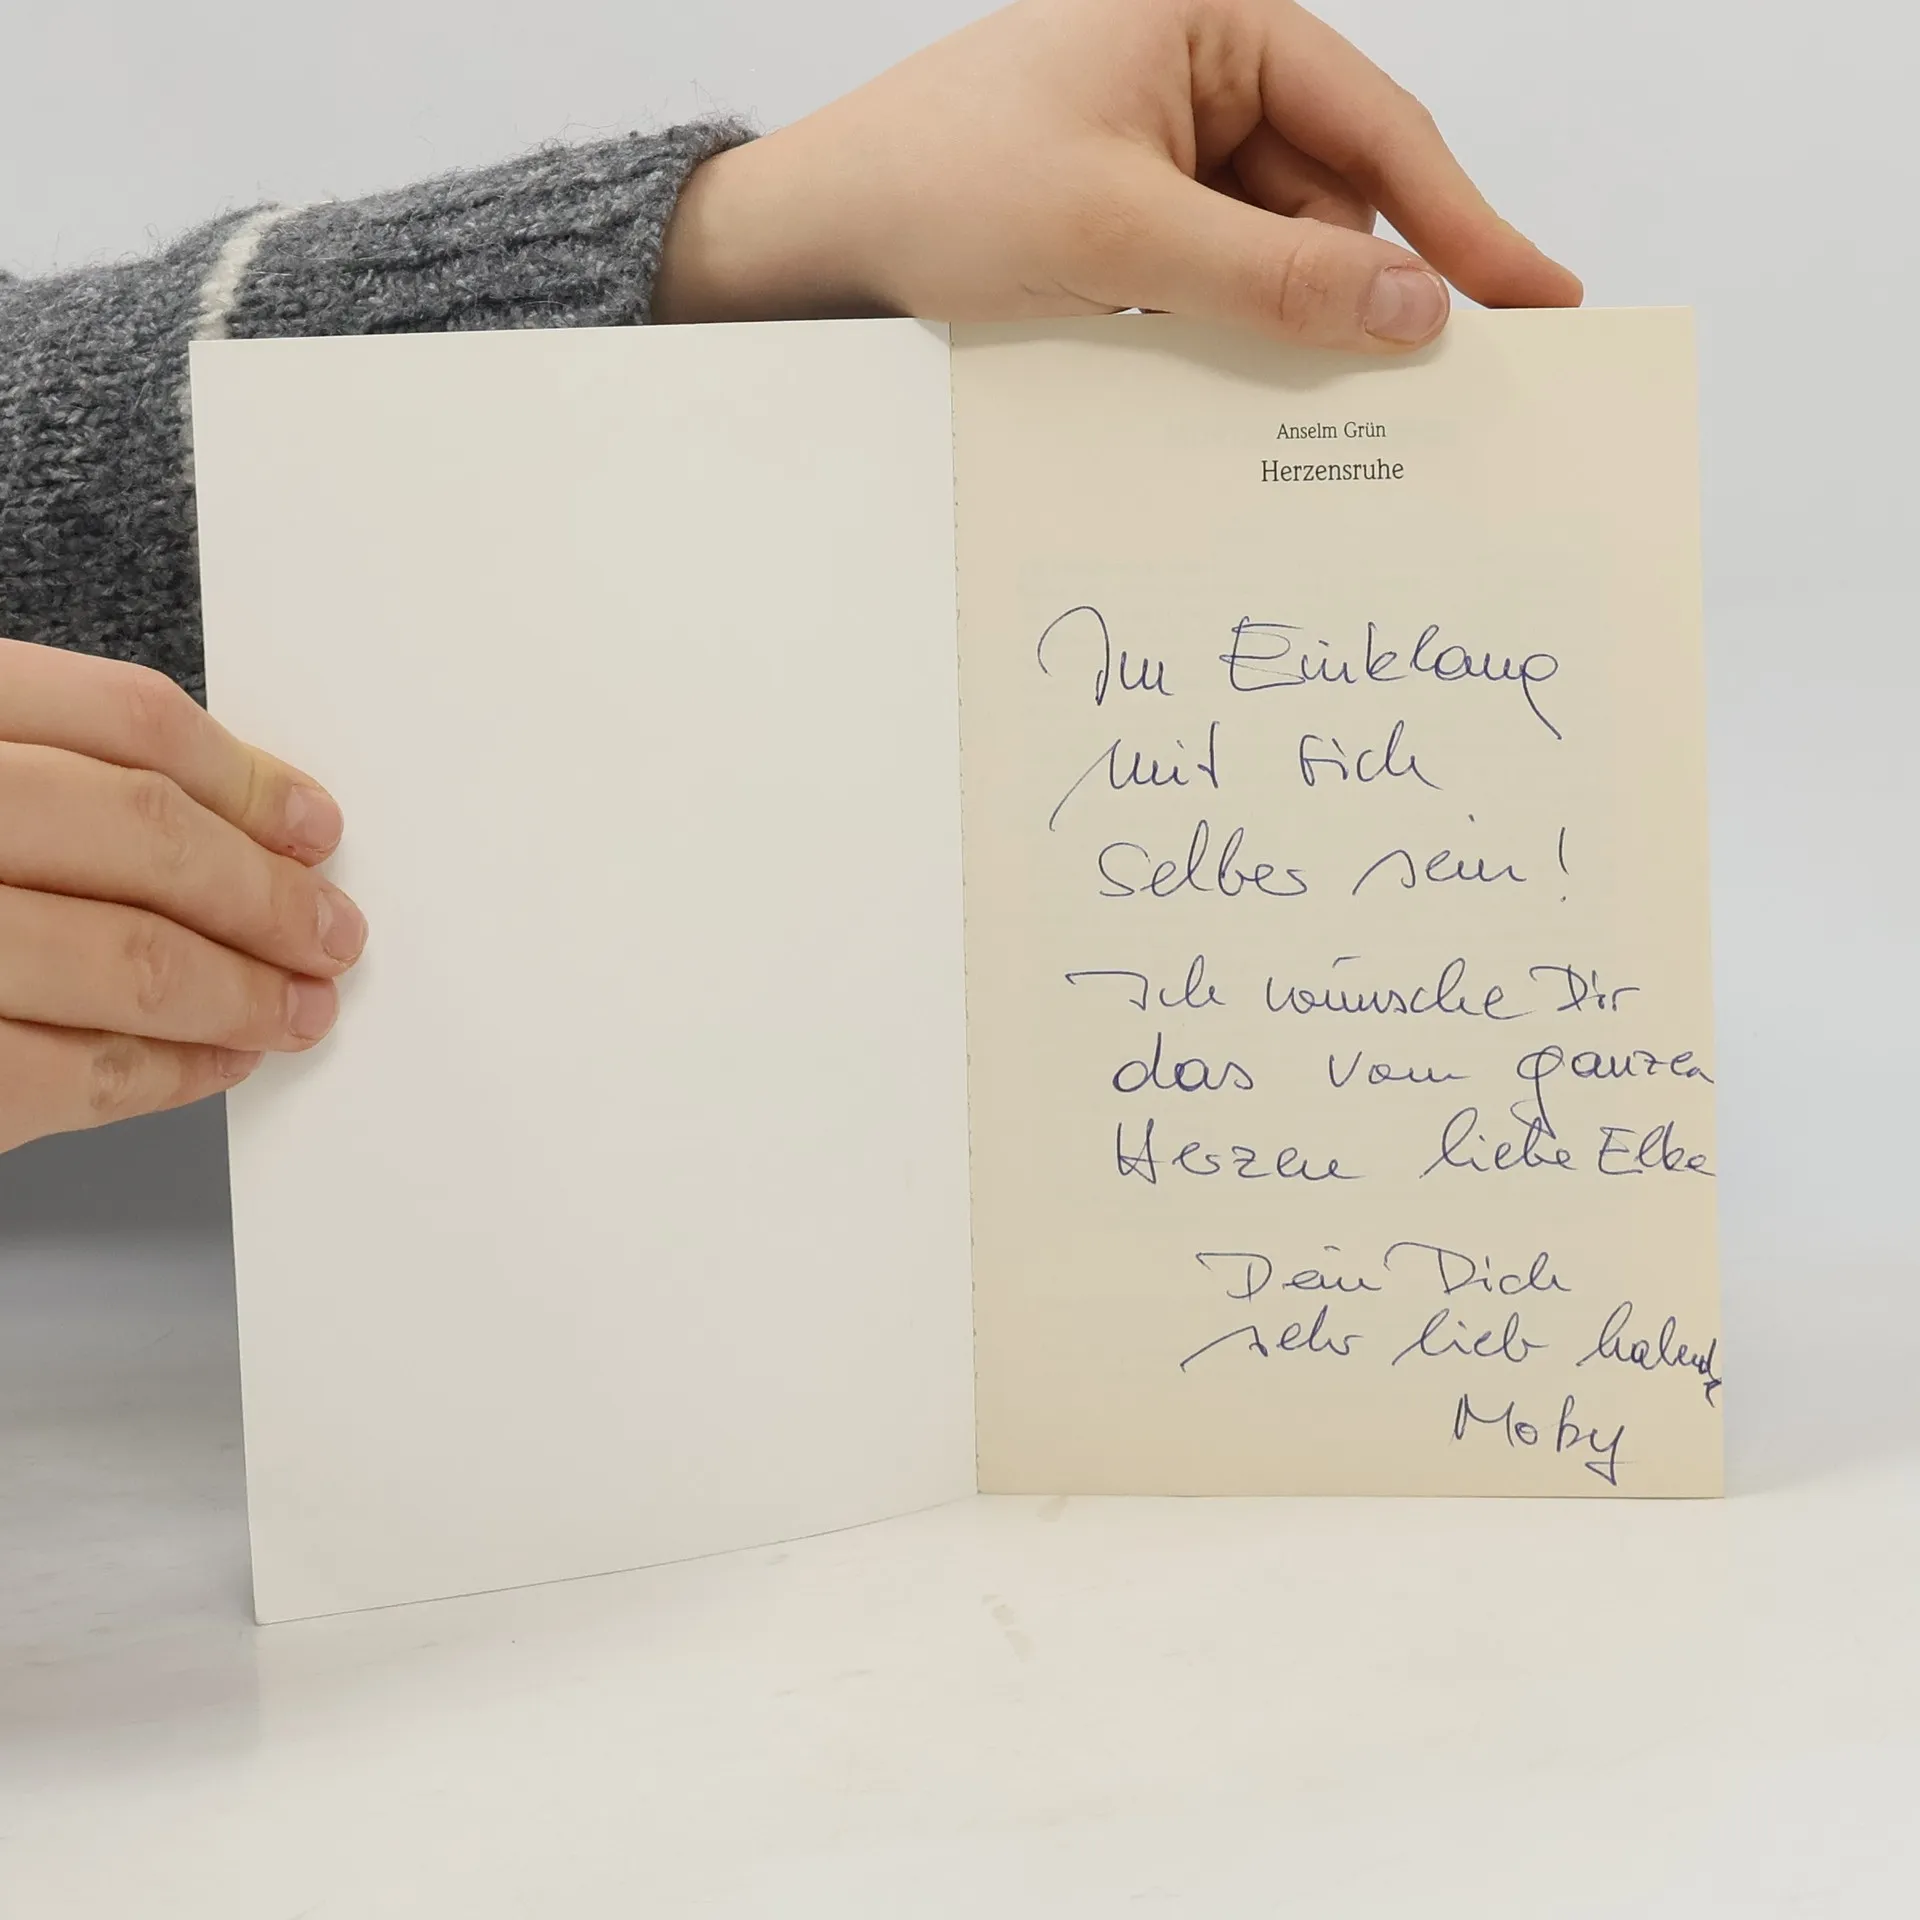 Anselm Grün
Herzensruhe
Im Einklang
mit sich
selber sein!
Ich wünsche Dir
das vom ganzen
Herzen liebe Elke
Dein Dich
sehr lieb habend
Moby